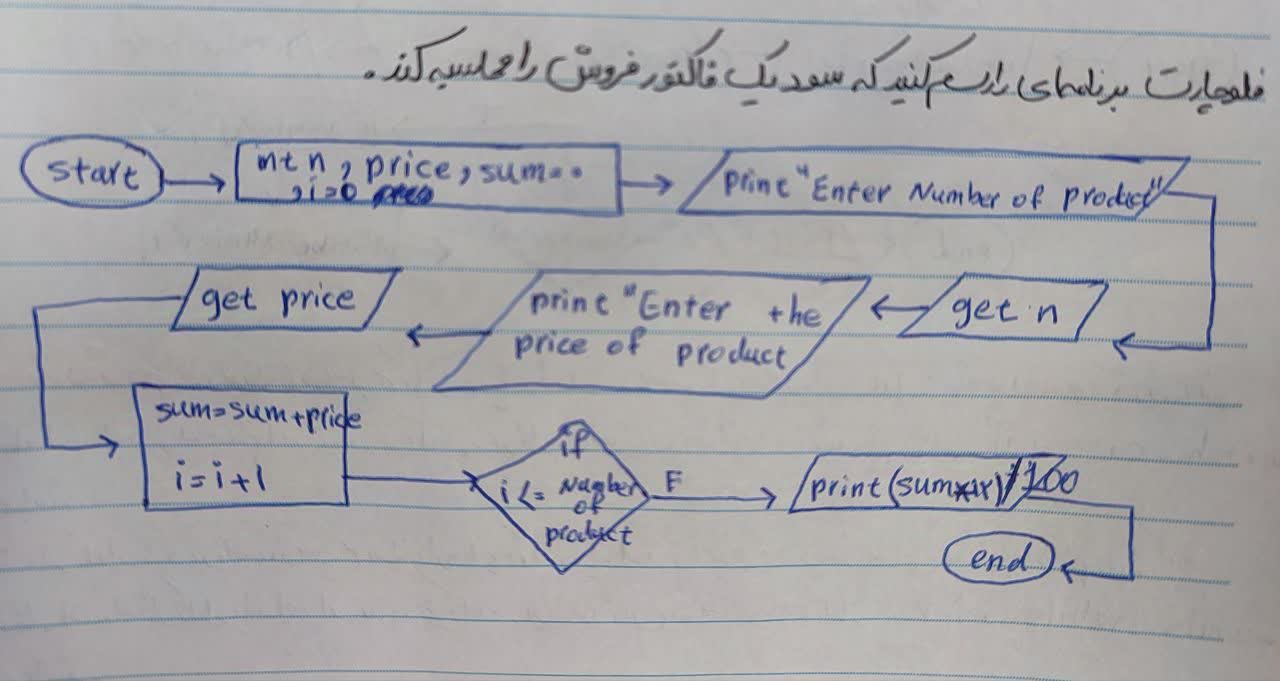 فلوچارت برنامه‌ای را رسم کنید که سود یک فاکتور فروش را محاسبه کند.
start
int n , price , sum=0
, i=0
print "Enter Number of product"
get n
print "Enter the
price of product
get price
sum=sum+price
i=i+1
if
i<= Number
of
product
F
print(sum
100
end